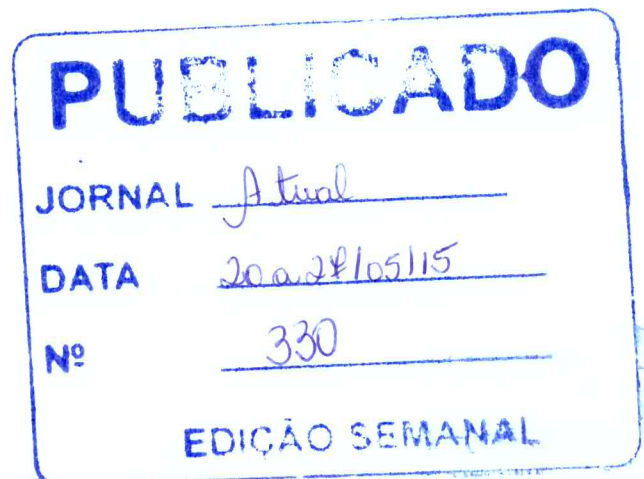 PUBLICADO
JORNAL Atual
DATA 20 a 27/05/15
Nº 330
EDIÇÃO SEMANAL